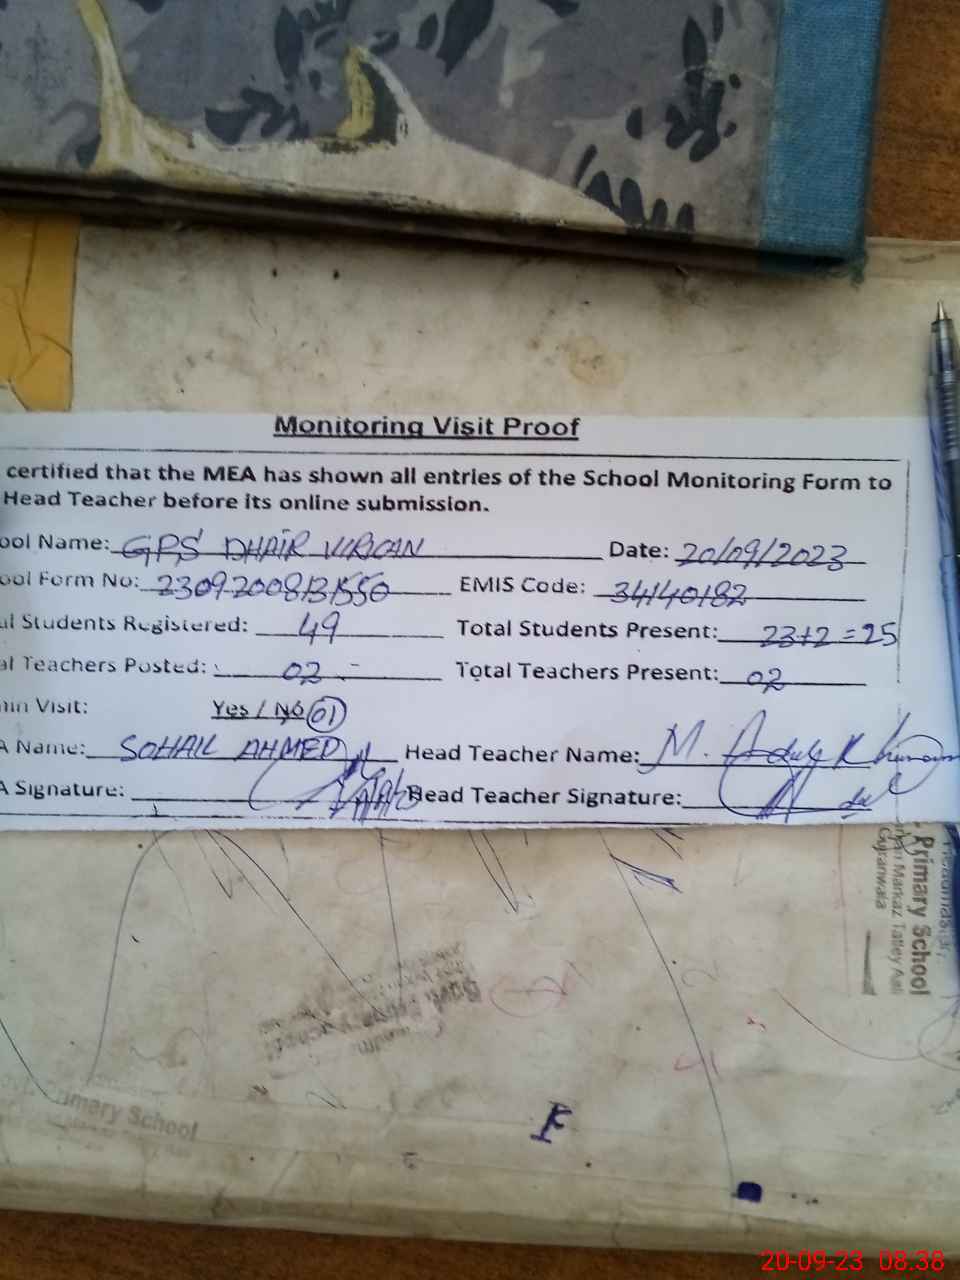 Monitoring Visit Proof
certified that the MEA has shown all entries of the School Monitoring Form to
Head Teacher before its online submission.
ool Name: GPS DHAIR VIRKAN Date: 20/09/2023
ool Form No: EMIS Code: 34140182
al Students Registered: 49 Total Students Present: 23+2=25
al Teachers Posted: 02 Total Teachers Present: 02
min Visit: Yes / No 01
A Name: SOHAIL AHMED Head Teacher Name: M.
A Signature: Head Teacher Signature:
Primary School
Markaz Tatley Aali
Gujranwala
Primary School
F
20-09-23 08.38